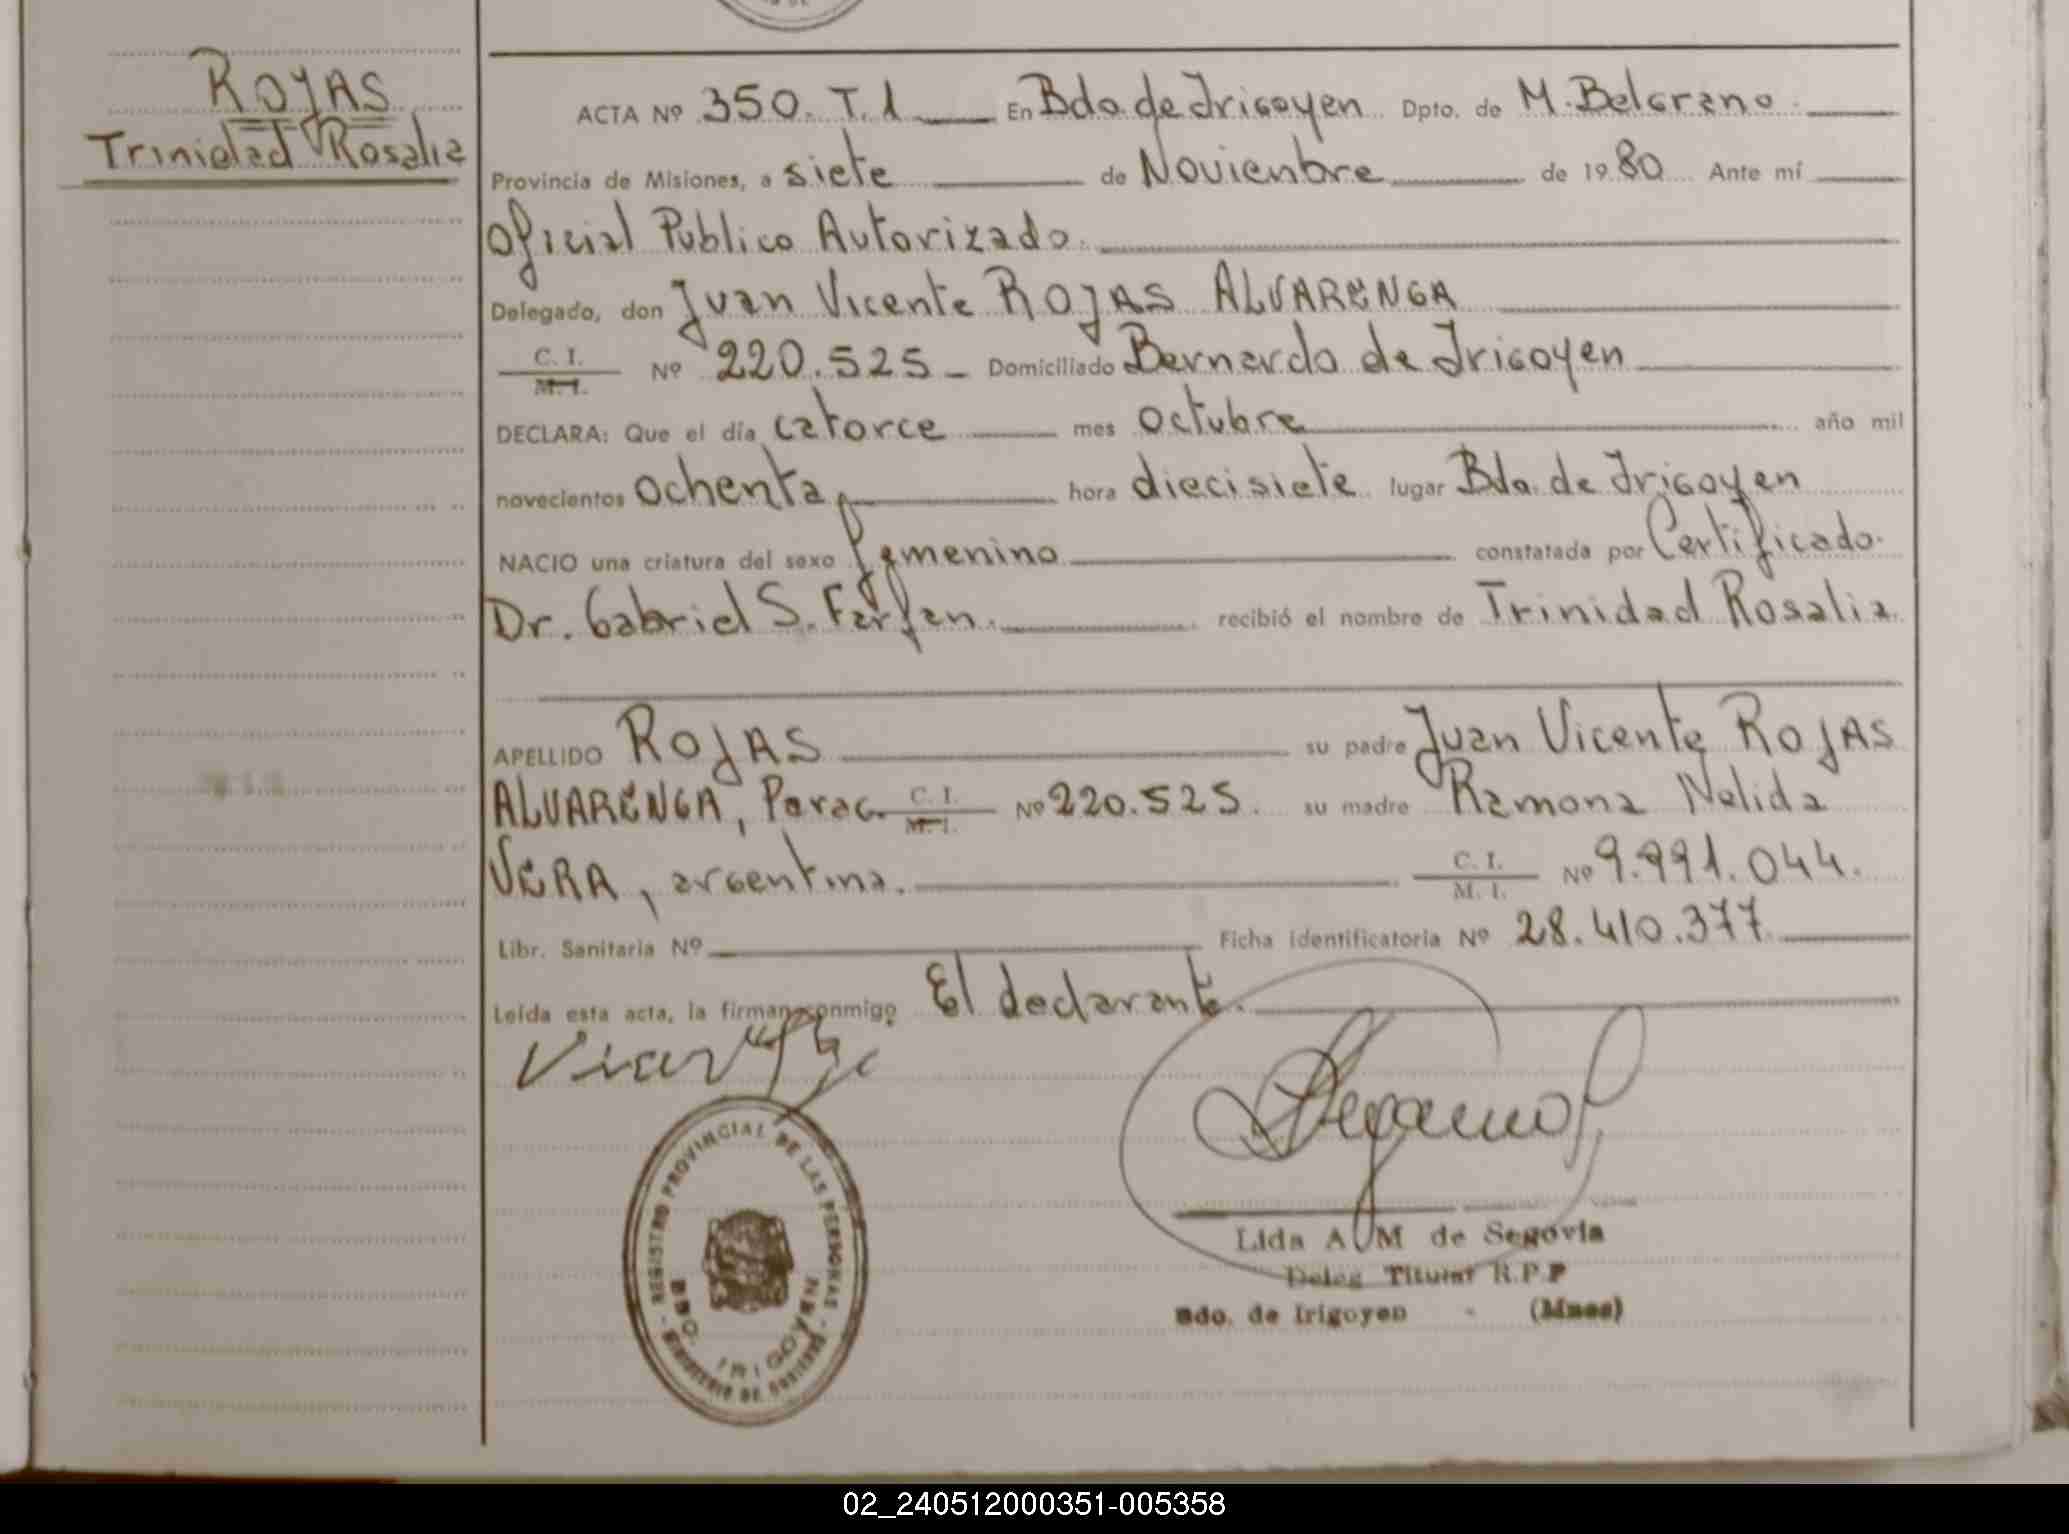 ROJAS
Trinidad Rosalia
ACTA Nº 350. T.1 En Bdo. de Irigoyen Dpto. de M. Belgrano.
Provincia de Misiones, a siete de Noviembre de 1980 Ante mí
Oficial Publico Autorizado.
Delegado, don Juan Vicente ROJAS ALVARENGA
C. I.
M. I.
Nº 220.525 - Domiciliado Bernardo de Irigoyen
DECLARA: Que el día catorce mes octubre año mil
novecientos ochenta, hora diecisiete lugar Bdo. de Irigoyen
NACIO una criatura del sexo femenino constatada por Certificado.
Dr. Gabriel S. Farfan. recibió el nombre de Trinidad Rosalia.
APELLIDO ROJAS su padre Juan Vicente ROJAS
ALVARENGA, Parag. C. I. M. I. Nº 220.525. su madre Ramona Nelida
VERA, argentina. C. I. M. I. Nº 9.991.044.
Libr. Sanitaria Nº Ficha identificatoria Nº 28.410.377
Leída esta acta, la firman conmigo El declarante.
REGISTRO PROVINCIAL DE LAS PERSONAS
BDO. IRIGOYEN
MINISTERIO DE GOBIERNO
Lida A M de Segovia
Deleg Titular R.P.P
Bdo. de Irigoyen - (Mnes)
02_240512000351-005358